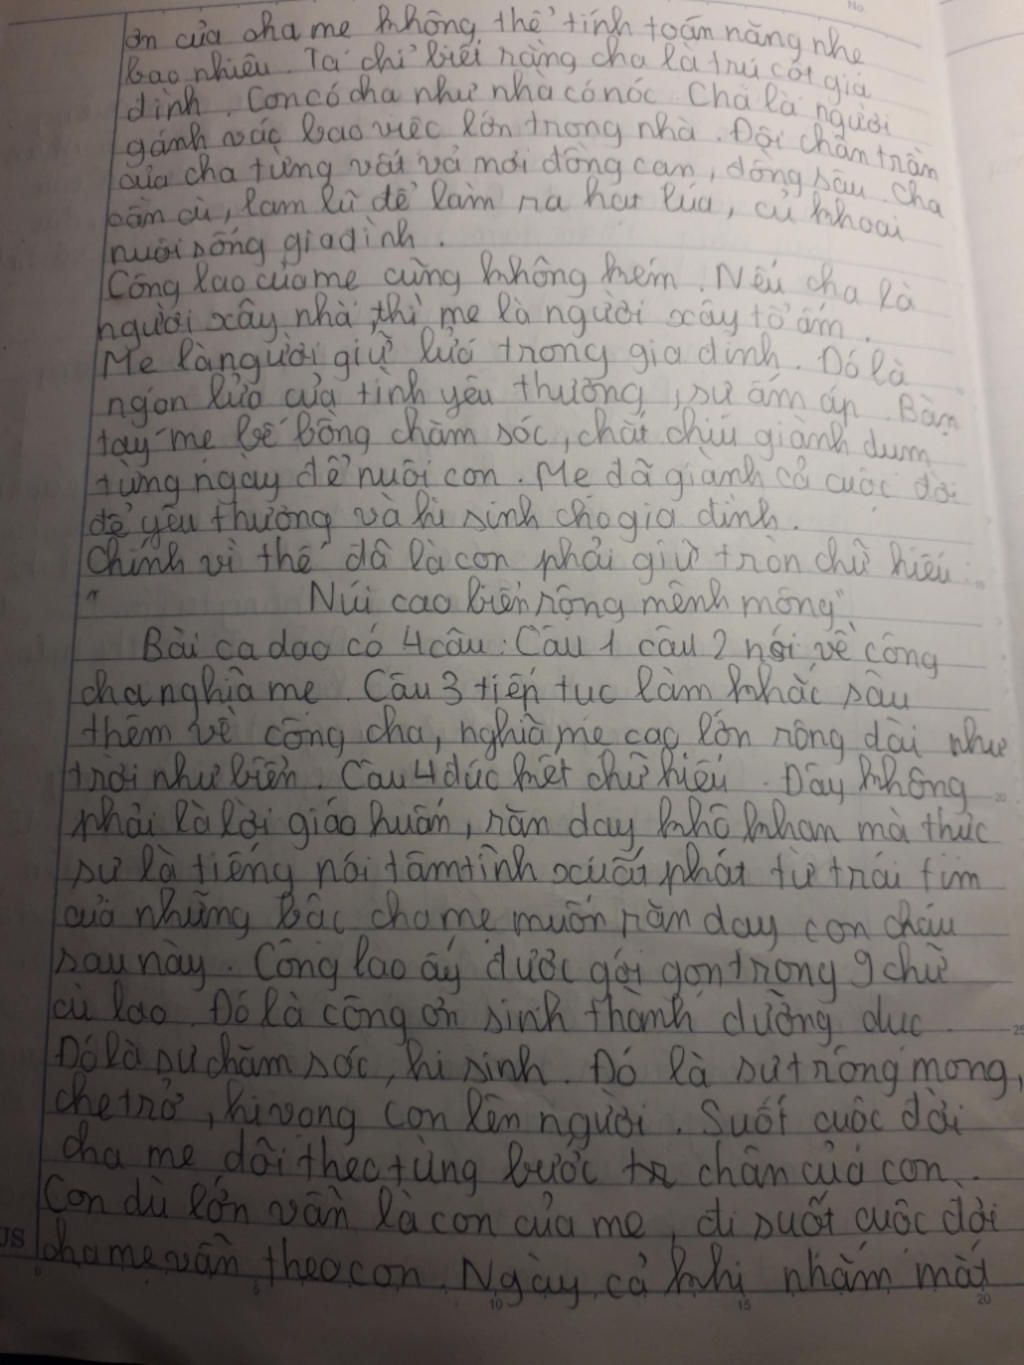 ơn của cha mẹ không thể tính toán nặng nhẹ
bao nhiêu. Ta chỉ biết rằng cha là trụ cột gia
đình. Con có cha như nhà có nóc. Cha là người
gánh vác bao việc lớn trong nhà. Đôi chân trần
của cha từng vất vả mới đồng cạn, đồng sâu. Cha
cần cù, lam lũ để làm ra hạt lúa, củ khoai
nuôi sống gia đình.
Công lao của mẹ cũng không kém. Nếu cha là
người xây nhà, thì mẹ là người xây tổ ấm.
Mẹ là người giữ lửa trong gia đình. Đó là
ngọn lửa của tình yêu thương, sự ấm áp. Bàn
tay mẹ bế bồng chăm sóc, chắt chiu giành dụm
từng ngày để nuôi con. Mẹ đã giành cả cuộc đời
để yêu thương và hi sinh cho gia đình.
Chính vì thế đã là con phải giữ tròn chữ hiếu:
"Núi cao biển rộng mênh mông"
Bài ca dao có 4 câu. Câu 1 câu 2 nói về công
cha nghĩa mẹ. Câu 3 tiếp tục làm khắc sâu
thêm về công cha, nghĩa mẹ cao lớn rộng dài như
trời như biển. Câu 4 đúc kết chữ hiếu. Đây không
phải là lời giáo huấn, răn dạy khô khan mà thực
sự là tiếng nói tâm tình xuất phát từ trái tim
của những bậc cha mẹ muốn răn dạy con cháu
sau này. Công lao ấy được gói gọn trong 9 chữ
cù lao. Đó là công ơn sinh thành dưỡng dục.
Đó là sự chăm sóc, hi sinh. Đó là sự trông mong,
che trở, hi vọng con lên người. Suốt cuộc đời
cha mẹ dõi theo từng bước chân của con.
Con dù lớn vẫn là con của mẹ, đi suốt cuộc đời
cha mẹ vẫn theo con. Ngày cả khi nhắm mắt